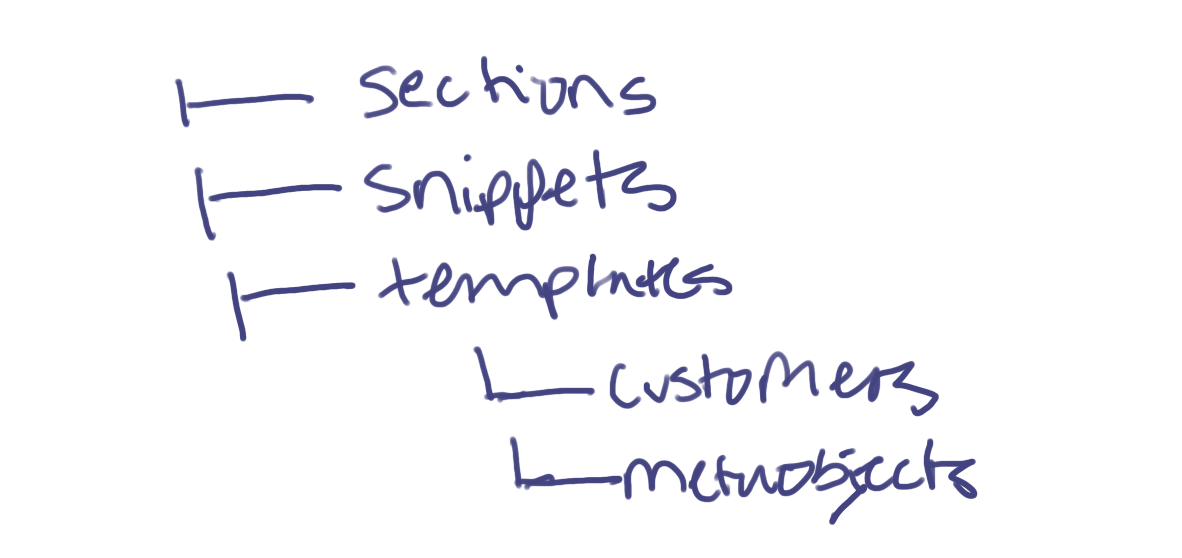 ├── sections
├── snippets
├── templates
└── customers
└── metaobjects